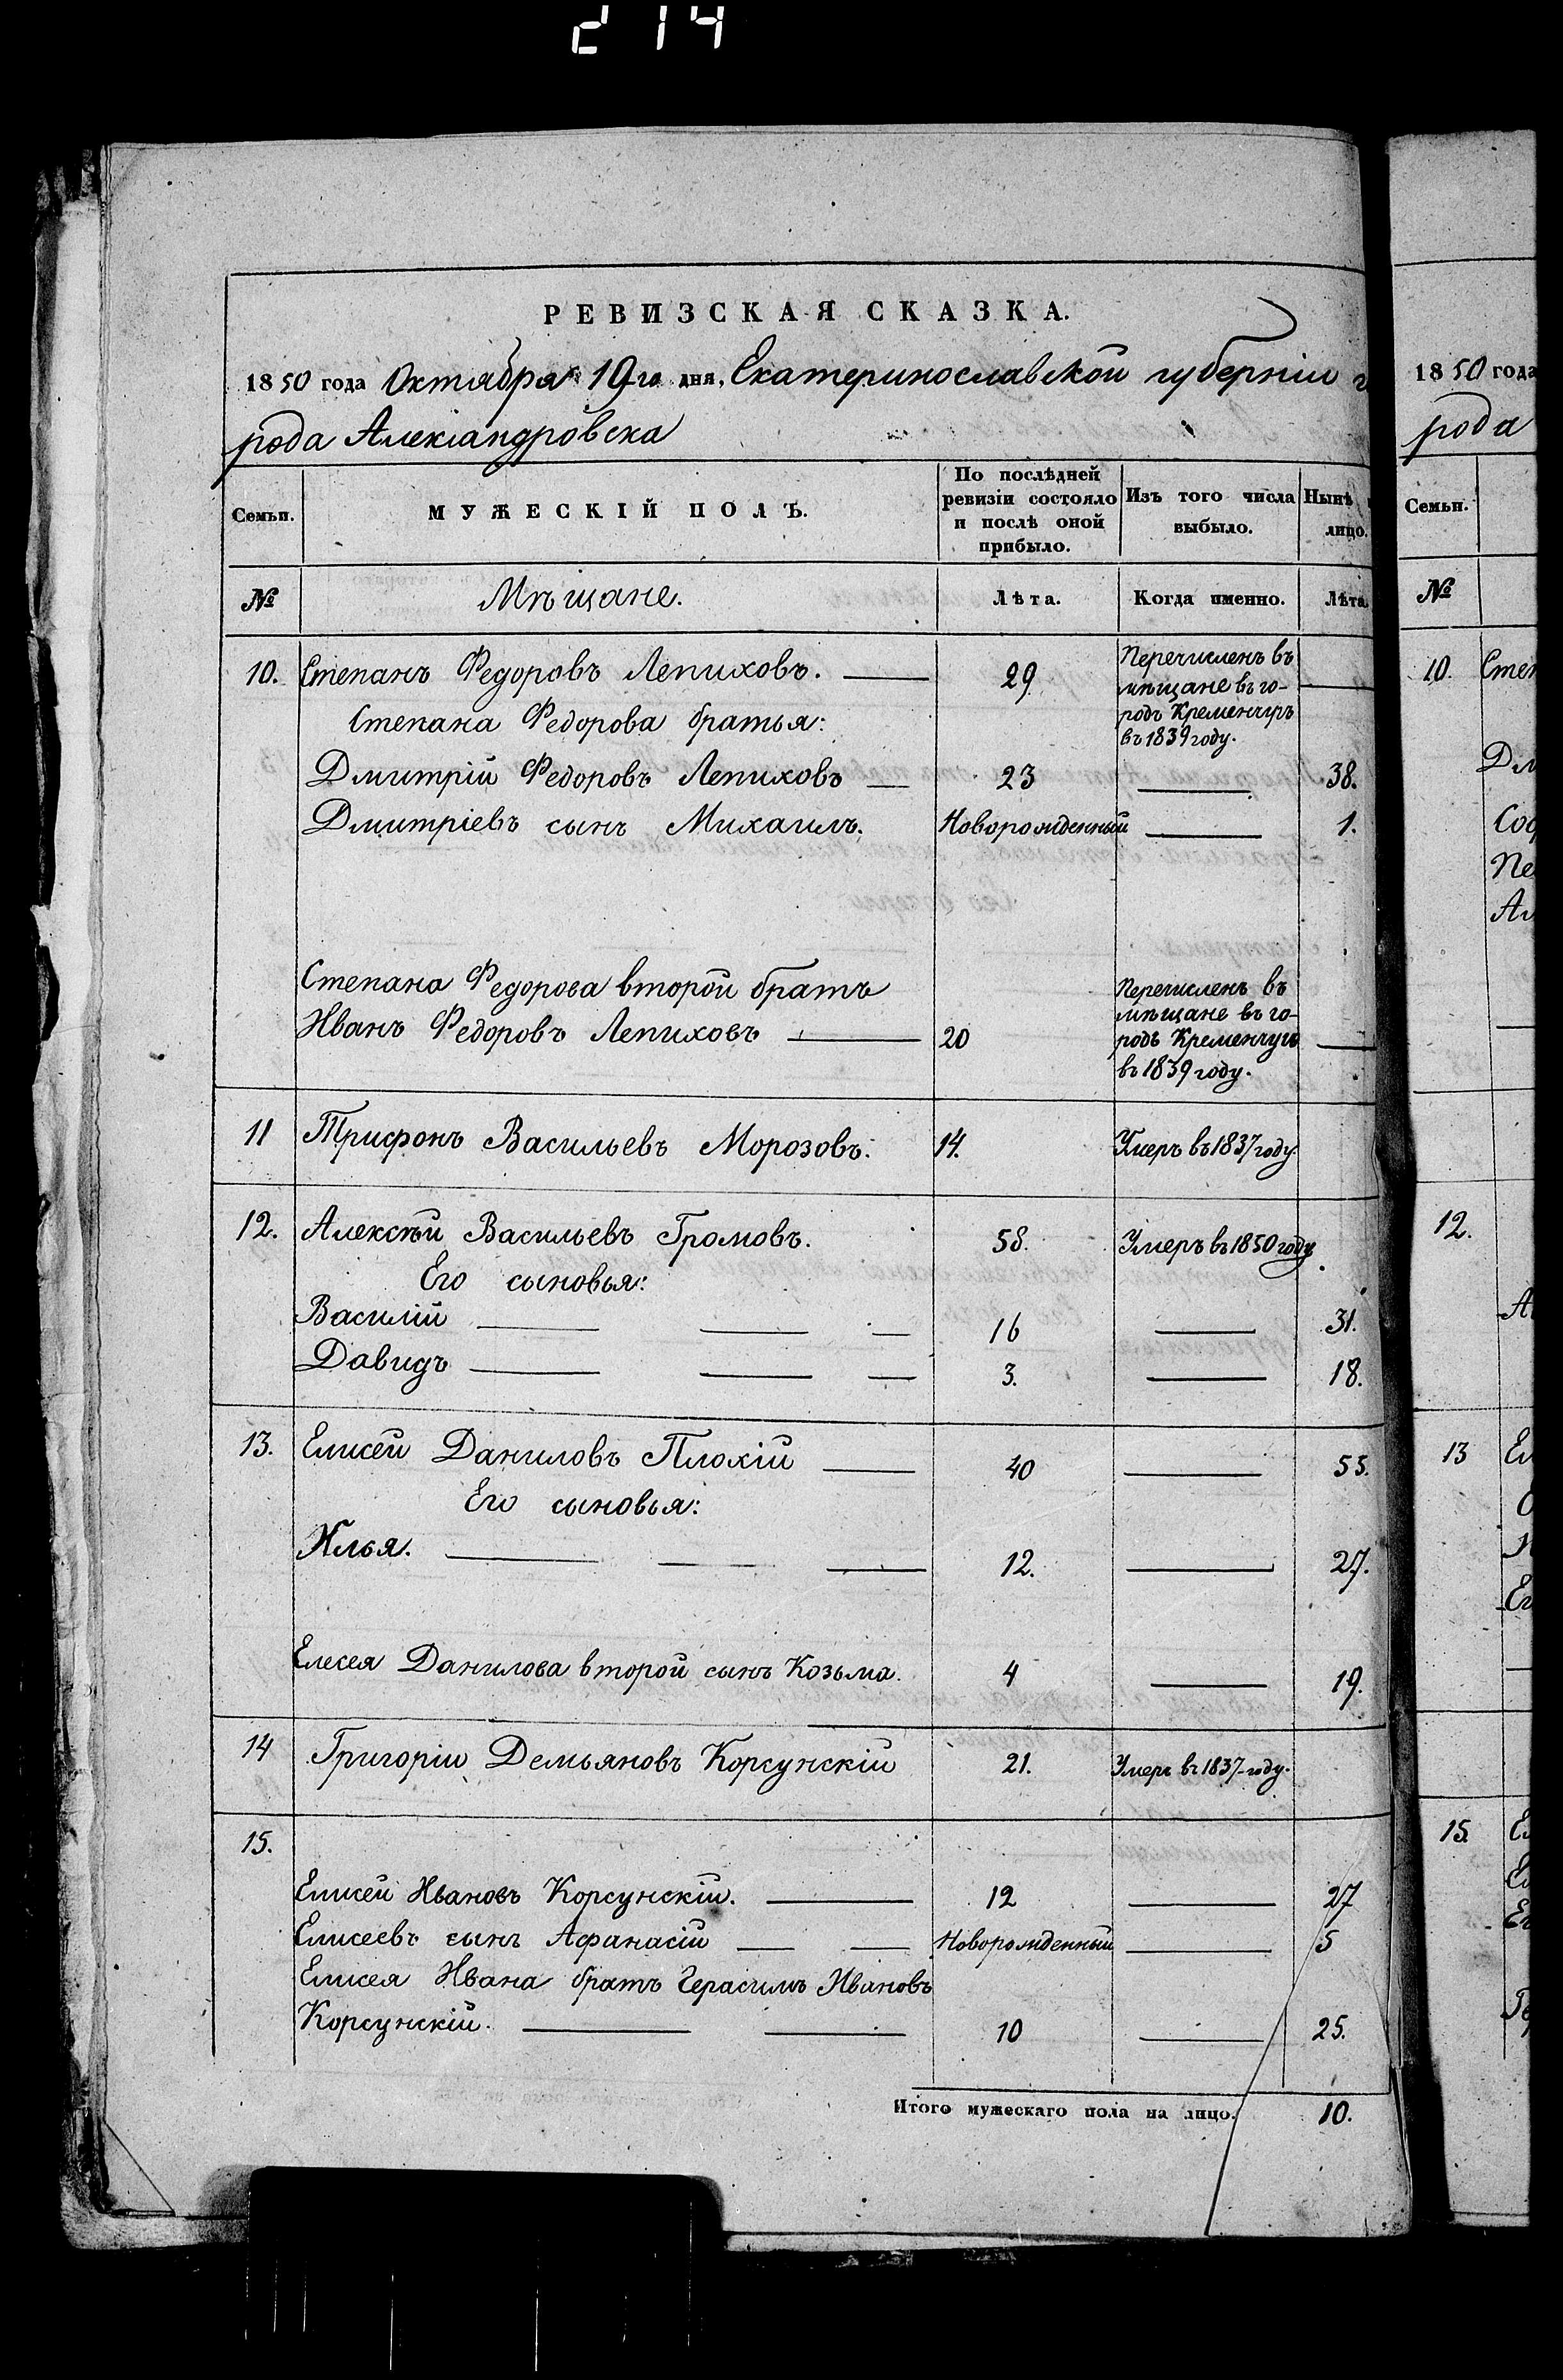 214
РЕВИЗСКАЯ СКАЗКА.
1850 года Октября 19го дня, Екатеринославской губернiи го
рода Александровска
Семьи. МУЖЕСКІЙ ПОЛЪ. По послѣдней ревизіи состояло и послѣ оной прибыло. Изъ того числа выбыло. Нынѣ лицо.
№ Мѣщане. Лѣта. Когда именно. Лѣта.
10. Степанъ Федоровъ Лепиховъ. — 29 Перечисленъ въ
мѣщане въ го-
Степана Федорова братья: родъ Кременчугъ
въ 1839 году.
Дмитрій Федоровъ Лепиховъ — 23 — 38.
Дмитріевъ сынъ Михаилъ. Новорожденный — 1.
Степана Федорова второй братъ Перечисленъ въ
мѣщане въ го-
Иванъ Федоровъ Лепиховъ — 20 родъ Кременчугъ —
въ 1839 году.
11 Трифонъ Васильевъ Морозовъ. 14. Умеръ въ 1837 году.
12. Алексѣй Васильевъ Громовъ. 58. Умеръ въ 1850 году.
Его сыновья:
Василій — — — 16 — 31.
Давидъ — — — 3. — 18.
13. Елисей Даниловъ Плохій — 40 — 55.
Его сыновья:
Илья. — — — 12. — 27.
Елесея Данилова второй сынъ Козьма. 4 — 19.
14 Григорій Демьяновъ Корсунскій 21. Умеръ въ 1837 году.
15.
Елисей Ивановъ Корсунскій. — 12 — 27
Елисеевъ сынъ Афанасій — — Новорожденный — 5
Елисея Ивана братъ Герасимъ Ивановъ
Корсунскій. — — 10 — 25.
Итого мужескаго пола на лицо. 10.
1850 года
рода
Семьи.
№
10. Степ
Дм
Ал
12.
13 Ел
15.